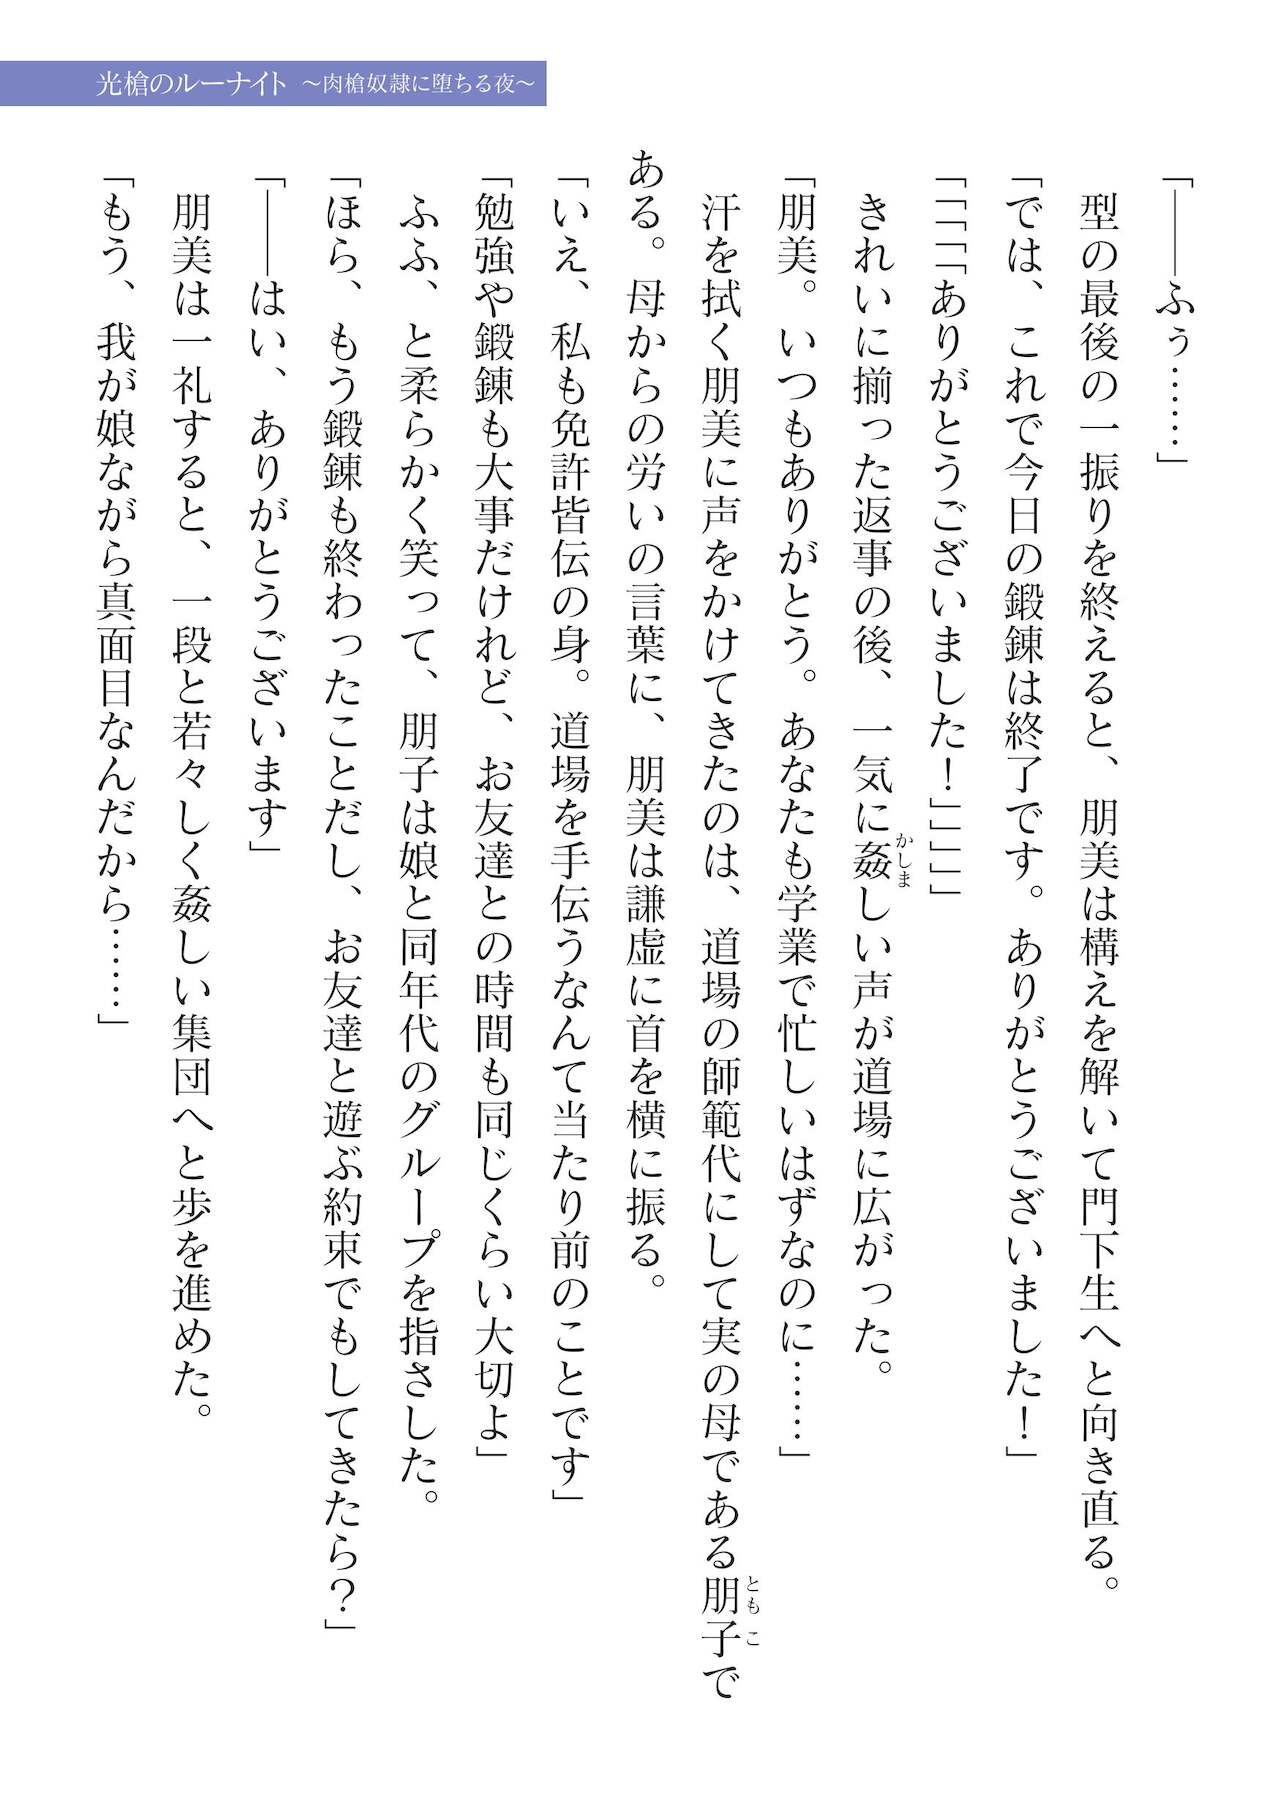 光槍のルーナイト ～肉槍奴隷に堕ちる夜～
「――ふぅ……」
型の最後の一振りを終えると、朋美は構えを解いて門下生へと向き直る。
「では、これで今日の鍛錬は終了です。ありがとうございました！」
「「「「ありがとうございました！」」」」
きれいに揃った返事の後、一気に姦しい声が道場に広がった。
かしま
「朋美。いつもありがとう。あなたも学業で忙しいはずなのに……」
汗を拭く朋美に声をかけてきたのは、道場の師範代にして実の母である朋子で
ともこ
ある。母からの労いの言葉に、朋美は謙虚に首を横に振る。
「いえ、私も免許皆伝の身。道場を手伝うなんて当たり前のことです」
「勉強や鍛錬も大事だけれど、お友達との時間も同じくらい大切よ」
ふふ、と柔らかく笑って、朋子は娘と同年代のグループを指さした。
「ほら、もう鍛錬も終わったことだし、お友達と遊ぶ約束でもしてきたら？」
「――はい、ありがとうございます」
朋美は一礼すると、一段と若々しく姦しい集団へと歩を進めた。
「もう、我が娘ながら真面目なんだから……」